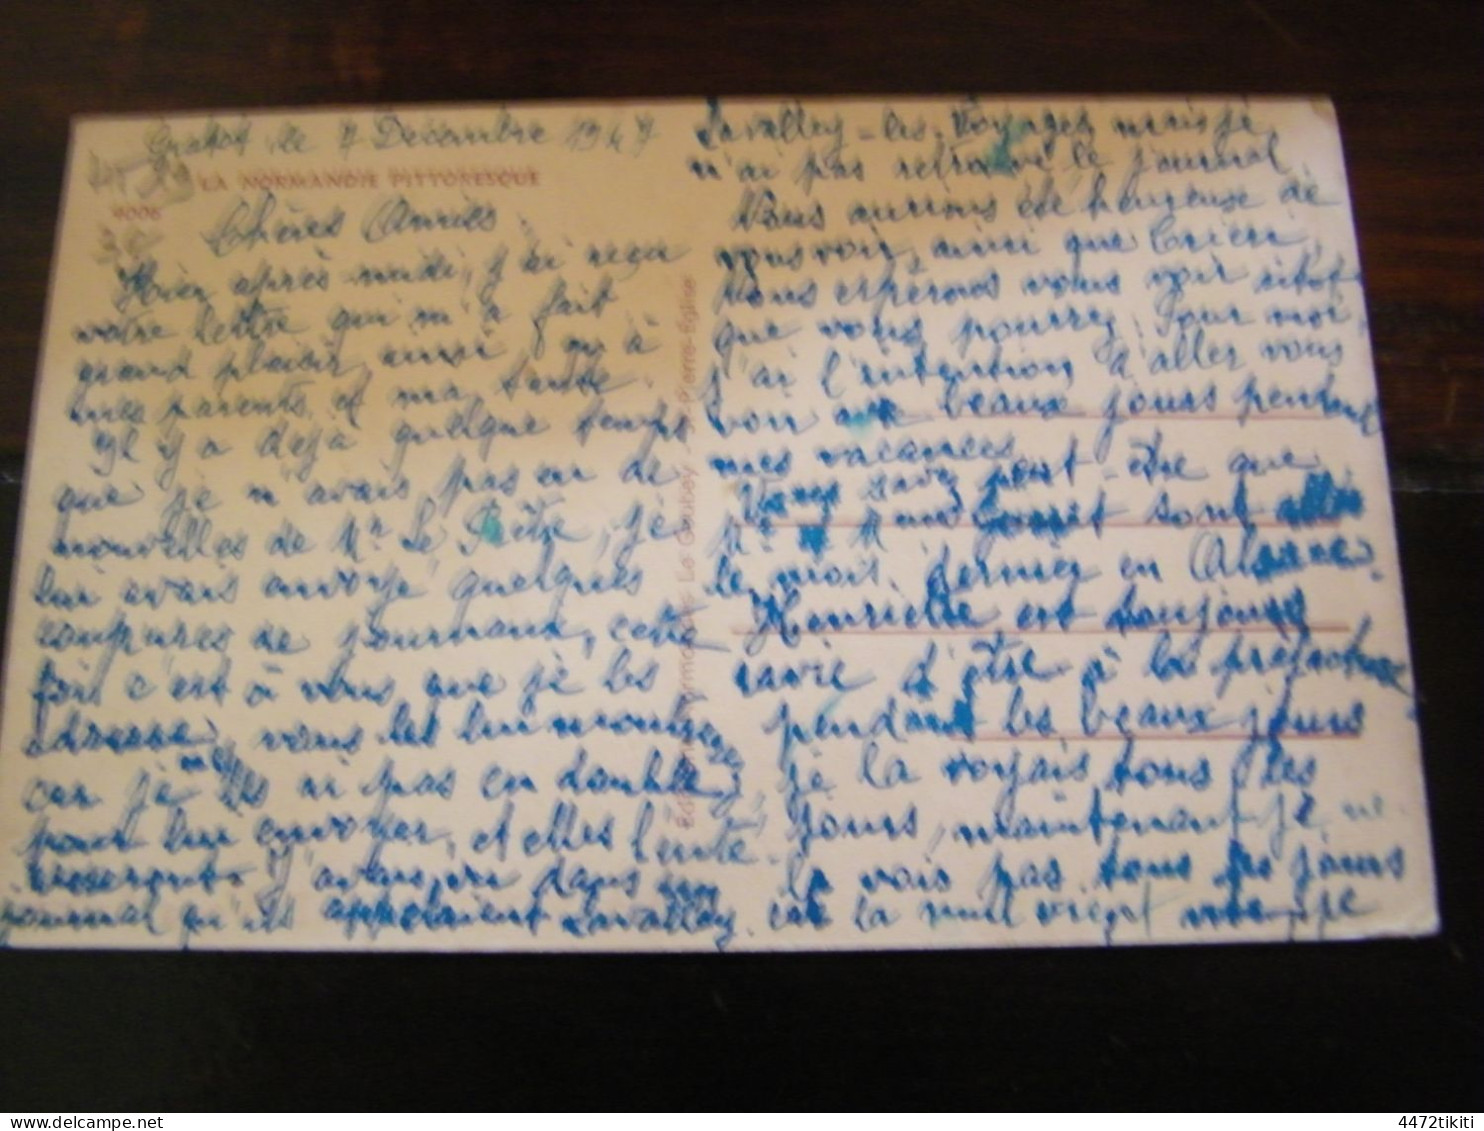 Gratot, le 7 Décembre 1947
LA NORMANDIE PITTORESQUE
4006
Chères Amies
Hier après midi, j'ai reçu
votre lettre qui m'a fait
grand plaisir, ainsi qu'à
mes parents et ma tante.
Il y a déjà quelque temps
que je n'avais pas eu de
nouvelles de Mr Le Prêtre, je
lui avais envoyé quelques
coupures de journaux, cette
fois c'est à vous que je les
adresse, vous les lui montrerez
car je ne les ai pas en double
pour lui envoyer, et elles l'inté-
resseront. J'avais vu dans un
journal qu'ils appelaient Lavalley
Lavalley-les-Voyages mais je
n'ai pas retrouvé le journal
Nous aurions été heureuse de
vous voir, ainsi que
Nous espérons vous voir sitôt
que vous pourrez. Pour moi,
j'ai l'intention d'aller vous
voir aux beaux jours pendant
mes vacances
Vous savez peut-être que
Mr et M sont allés
le mois dernier en Alsace.
Henriette est toujours
ravie d'être à la préfecture
pendant les beaux jours
je la voyais tous les
jours, maintenant je ne
la vois pas tous les jours
car la nuit vient vite
Editions Normandes Le Goubey - St-Pierre-Eglise
4472tikiti